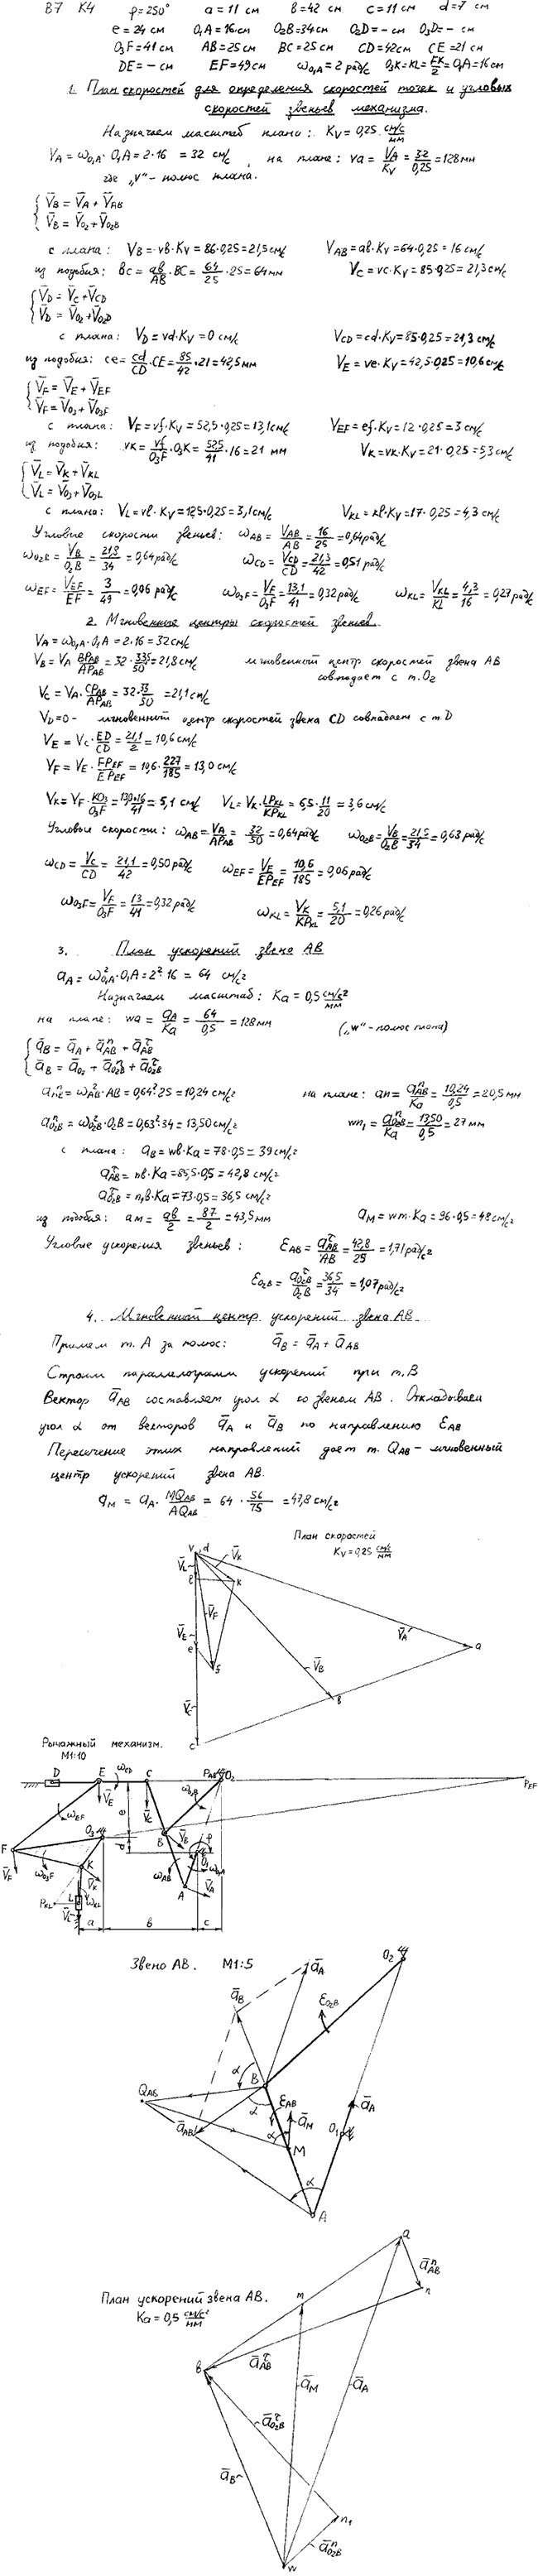 В7 К4 φ=250° a=11 см b=42 см c=11 см d=7 см
e=24 см O₁A=16 см O₂B=34 см O₂D=– см O₃D=– см
O₃F=41 см AB=25 см BC=25 см CD=42 см CE=21 см
DE=– см EF=49 см ω_O₁A=2 рад/с O₃K=KL=FK/2=O₁A=16 см
1. План скоростей для определения скоростей точек и угловых
скоростей звеньев механизма.
Назначаем масштаб плана: Kv=0,25 см/с/мм
V_A=ω_O₁A·O₁A=2·16=32 см/с, на плане: va=V_A/Kv=32/0,25=128мм
где „v"-полюс плана.
{V̄_B=V̄_A+V̄_AB
{V̄_B=V̄_O₂+V̄_O₂B
с плана: V_B=vb·Kv=86·0,25=21,5см/с V_AB=ab·Kv=64·0,25=16 см/с
из подобия: bc=ab/AB·BC=64/25·25=64мм V_C=vc·Kv=85·0,25=21,3см/с
{V̄_D=V̄_C+V̄_CD
{V̄_D=V̄_O₂+V̄_O₂D
с плана: V_D=vd·Kv=0 см/с V_CD=cd·Kv=85·0,25=21,3 см/с
из подобия: ce=cd/CD·CE=85/42·21=42,5мм V_E=ve·Kv=42,5·0,25=10,6см/с
{V̄_F=V̄_E+V̄_EF
{V̄_F=V̄_O₃+V̄_O₃F
с плана: V_F=vf·Kv=52,5·0,25=13,1см/с V_EF=ef·Kv=12·0,25=3 см/с
из подобия: vk=vf/O₃F·O₃K=52,5/41·16=21 мм V_K=vk·Kv=21·0,25=5,3см/с
{V̄_L=V̄_K+V̄_KL
{V̄_L=V̄_O₃+V̄_O₃L
с плана: V_L=vl·Kv=12,5·0,25=3,1см/с V_KL=kl·Kv=17·0,25=4,3 см/с
Угловые скорости звеньев: ω_AB=V_AB/AB=16/25=0,64рад/с
ω_O₂B=V_B/O₂B=21,3/34=0,64рад/с ω_CD=V_CD/CD=21,3/42=0,51 рад/с
ω_EF=V_EF/EF=3/49=0,06 рад/с ω_O₃F=V_F/O₃F=13,1/41=0,32рад/с ω_KL=V_KL/KL=4,3/16=0,27рад/с
2. Мгновенные центры скоростей звеньев.
V_A=ω_O₁A·O₁A=2·16=32см/с
V_B=V_A·BP_AB/AP_AB=32·33,5/50=21,8см/с мгновенный центр скоростей звена AB
совпадает с т.O₂
V_C=V_A·CP_AB/AP_AB=32·33/50=21,1см/с
V_D=0 - мгновенный центр скоростей звена CD совпадает с т.D
V_E=V_C·ED/CD=21,1/2=10,6 см/с
V_F=V_E·FP_EF/EP_EF=10,6·227/185=13,0 см/с
V_K=V_F·KO₃/O₃F=13,0·16/41=5,1 см/с V_L=V_K·LP_KL/KP_KL=6,5·11/20=3,6см/с
Угловые скорости: ω_AB=V_A/AP_AB=32/50=0,64рад/с ω_O₂B=V_B/O₂B=21,5/34=0,63рад/с
ω_CD=V_C/CD=21,1/42=0,50рад/с ω_EF=V_E/EP_EF=10,6/185=0,06рад/с
ω_O₃F=V_F/O₃F=13/41=0,32рад/с ω_KL=V_K/KP_KL=5,1/20=0,26рад/с
3. План ускорений звена AB
a_A=ω²_O₁A·O₁A=2²·16=64 см/с²
Назначаем масштаб: Ka=0,5 см/с²/мм
на плане: wa=a_A/Ka=64/0,5=128мм („w"-полюс плана)
{ā_B=ā_A+ā_AB^n+ā_AB^τ
{ā_B=ā_O₂+ā_O₂B^n+ā_O₂B^τ
a^n=ω²_AB·AB=0,64²·25=10,24 см/с² на плане: an=a^n_AB/Ka=10,24/0,5=20,5мм
a^n_O₂B=ω²_O₂B·O₂B=0,63²·34=13,50см/с² wn₁=a^n_O₂B/Ka=13,50/0,5=27 мм
с плана: a_B=wb·Ka=78·0,5=39см/с²
a^τ_AB=nb·Ka=85,5·0,5=42,8 см/с²
a^τ_O₂B=n₁b·Ka=73·0,5=36,5 см/с²
из подобия: am=ab/2=87/2=43,5мм a_M=wm·Ka=96·0,5=48см/с²
Угловые ускорения звеньев: ε_AB=a^τ_AB/AB=42,8/25=1,71рад/с²
ε_O₂B=a^τ_O₂B/O₂B=36,5/34=1,07рад/с²
4. Мгновенный центр ускорений звена AB
Примем т.A за полюс: ā_B=ā_A+ā_AB
Строим параллелограмм ускорений при т.B
Вектор ā_AB составляет угол α со звеном AB. Откладываем
угол α от векторов ā_A и ā_B по направлению ε_AB
Пересечение этих направлений дает т. Q_AB - мгновенный
центр ускорений звена AB.
a_M=a_A·MQ_AB/AQ_AB=64·56/75=47,8см/с²
План скоростей
Kv=0,25 см/с/мм
v d
V̄_L V̄_K
l k
V̄_F
V̄_E V̄_A
e a
f V̄_B
b
V̄_C
c
Рычажный механизм.
М1:10
D E ω_CD C P_AB O₂ P_EF
V̄_E V̄_C ω_O₂B
ω_EF e
F O₃ B V̄_B φ
V̄_F ω_O₃F K d O₁ ω_O₁A
V̄_K ω_AB
P_KL L ω_KL A V̄_A
V̄_L a b c
Звено AB. М1:5
O₂
ā_B ā_A
ε_O₂B
α B
Q_AB ε_AB
ā_AB α ā_M ā_A
α O₁
M
α
A
План ускорений звена AB.
Ka=0,5 см/с²/мм
a
ā^n_AB
m n
b ā^τ_AB
ā_M ā_A
ā^τ_O₂B
ā_B
n₁
ā^n_O₂B
w